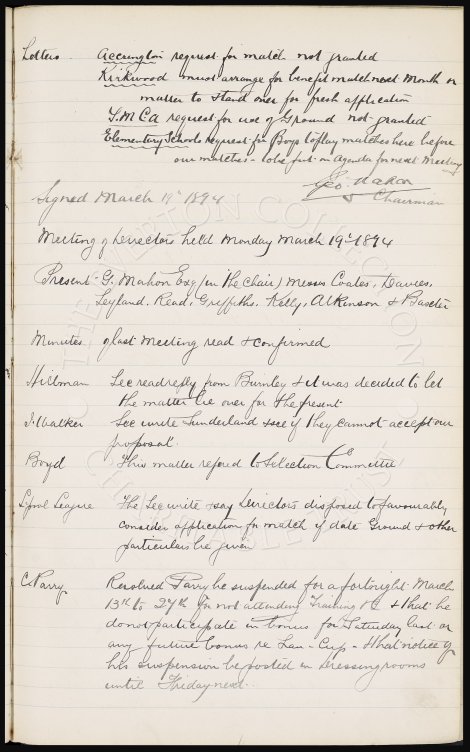 Letters Accrington request for match not granted
Kirkwood must arrange for benefit match next month or
matter to stand over for fresh application
Y.M.C.A request for use of Ground not granted
Elementary Schools request for Boys to play matches here before
our matches - to be put on agenda for next Meeting
Geo. Mahon
Chairman
Signed March 19th 1894
Meeting of Directors held Monday March 19th 1894
Present - G. Mahon Esq (in the chair) Messrs Coates, Davies,
Leyland, Read, Griffiths, Kelly, Atkinson & Baxter
Minutes of last Meeting read & confirmed
Hillman Sec read reply from Burnley & it was decided to let
the matter lie over for the present
J. Walker Sec write Sunderland & see if they cannot accept our
proposal.
Boyd This matter referd to Selection Committee
Lpool League The Sec write & say Directors disposed to favourably
consider application for match if date Ground & other
particulars be given
C. Parry Resolved Parry be suspended for a fortnight March
13th to 27th for not attending Training &c & that he
do not participate in bonus for Saturday last or
any future bonus re Lan- Cup - & that notice of
his suspension be posted in Dressing rooms
until Friday next.
THE EVERTON COLLECTION
CHARITABLE TRUST